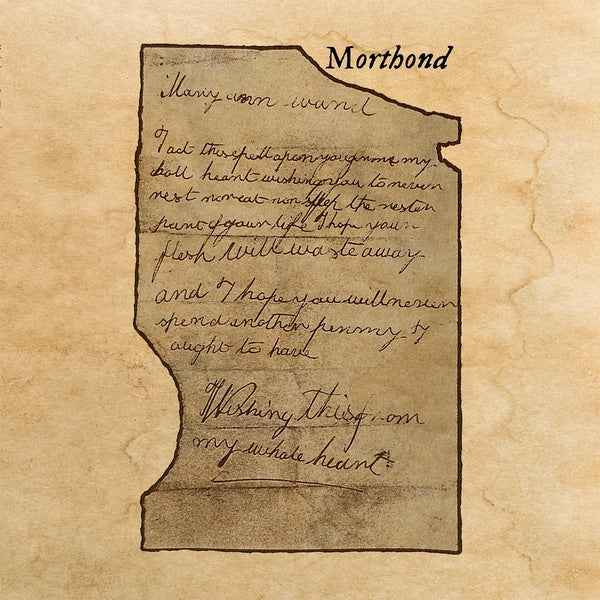 Morthond
Mary ann ward
I act this spell upon you from my
holl heart wishing you to never
rest nor eat nor sleep the resten
part of your life I hope your
flesh will waste away
and I hope you will never
spend another penny I
ought to have
Wishing this from
my whole heart